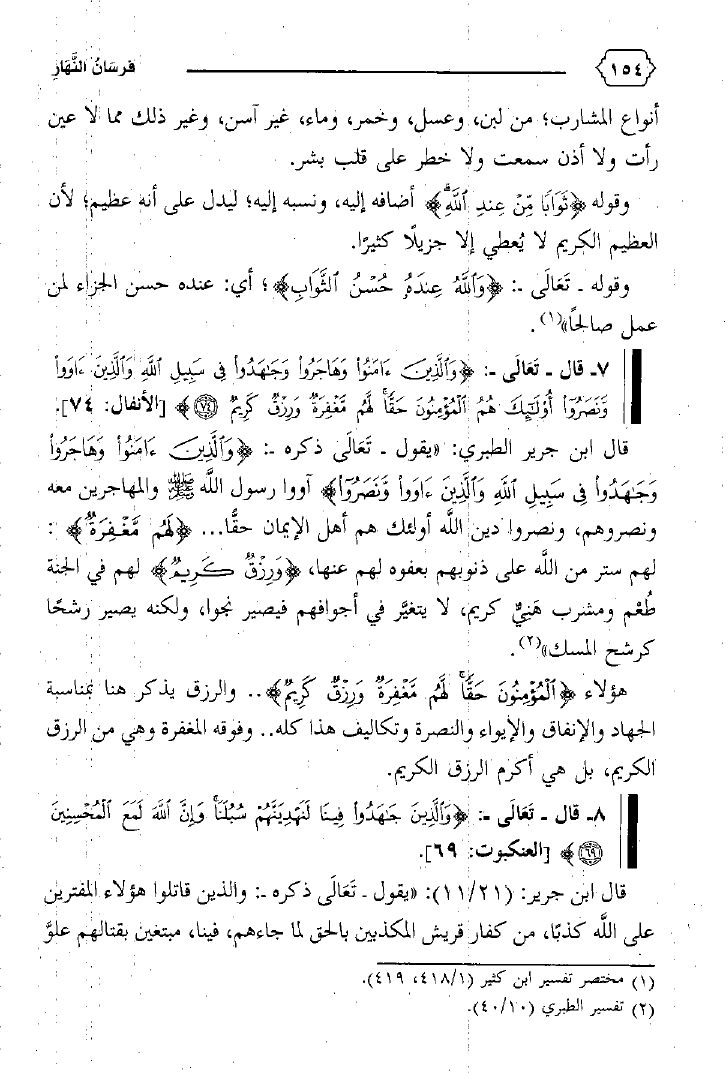 ١٥٤ فرسَانُ النَّهَارِ
أنواع المشارب؛ من لبن، وعسل، وخمر، وماء، غير آسن، وغير ذلك مما لا عين
رأت ولا أذن سمعت ولا خطر على قلب بشر.
وقوله ﴿ثَوَابًا مِّنْ عِندِ ٱللَّهِ﴾ أضافه إليه، ونسبه إليه؛ ليدل على أنه عظيم؛ لأن
العظيم الكريم لا يُعطي إلا جزيلًا كثيرًا.
وقوله ـ تَعَالَى ـ: ﴿وَٱللَّهُ عِندَهُۥ حُسْنُ ٱلثَّوَابِ﴾؛ أي: عنده حسن الجزاء لمن
عمل صالحًا»(١).
٧ـ قال ـ تَعَالَى ـ: ﴿وَٱلَّذِينَ ءَامَنُوا۟ وَهَاجَرُوا۟ وَجَٰهَدُوا۟ فِى سَبِيلِ ٱللَّهِ وَٱلَّذِينَ ءَاوَوا۟
وَّنَصَرُوٓا۟ أُو۟لَٰٓئِكَ هُمُ ٱلْمُؤْمِنُونَ حَقًّا ۚ لَّهُم مَّغْفِرَةٌ وَرِزْقٌ كَرِيمٌ ٧٤﴾ [الأنفال: ٧٤].
قال ابن جرير الطبري: «يقول ـ تَعَالَى ذكره ـ: ﴿وَٱلَّذِينَ ءَامَنُوا۟ وَهَاجَرُوا۟
وَجَٰهَدُوا۟ فِى سَبِيلِ ٱللَّهِ وَٱلَّذِينَ ءَاوَوا۟ وَّنَصَرُوٓا۟﴾ آووا رسول اللَّه ﷺ والمهاجرين معه
ونصروهم، ونصروا دين اللَّه أولئك هم أهل الإيمان حقًّا... ﴿لَّهُم مَّغْفِرَةٌ﴾:
لهم ستر من اللَّه على ذنوبهم بعفوه لهم عنها، ﴿وَرِزْقٌ كَرِيمٌ﴾ لهم في الجنة
طُعْم ومشرب هَنِيٌّ كريم، لا يتغيَّر في أجوافهم فيصير نجوا، ولكنه يصير رشحًا
كرشح المسك»(٢).
هؤلاء ﴿ٱلْمُؤْمِنُونَ حَقًّا ۚ لَّهُم مَّغْفِرَةٌ وَرِزْقٌ كَرِيمٌ﴾.. والرزق يذكر هنا بمناسبة
الجهاد والإنفاق والإيواء والنصرة وتكاليف هذا كله.. وفوقه المغفرة وهي من الرزق
الكريم، بل هي أكرم الرزق الكريم.
٨ـ قال ـ تَعَالَى ـ: ﴿وَٱلَّذِينَ جَٰهَدُوا۟ فِينَا لَنَهْدِيَنَّهُمْ سُبُلَنَا ۚ وَإِنَّ ٱللَّهَ لَمَعَ ٱلْمُحْسِنِينَ
٦٩﴾ [العنكبوت: ٦٩].
قال ابن جرير: (١١/٢١): «يقول ـ تَعَالَى ذكره ـ: والذين قاتلوا هؤلاء المفترين
على اللَّه كذبًا، من كفار قريش المكذبين بالحق لما جاءهم، فينا، مبتغين بقتالهم علوَّ
(١) مختصر تفسير ابن كثير (٤١٨/١، ٤١٩).
(٢) تفسير الطبري (٤٠/١٠).